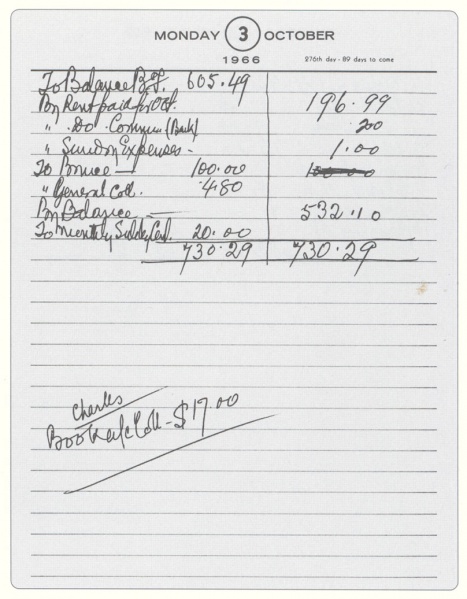 MONDAY 3 OCTOBER
1966 276th day - 89 days to come
To Balance B.F. 605.49
By Rent paid for Oct. 196.99
" Do. Commn (Bank) 200
" Sundry Expenses - 1.00
To Bruce — 100.00
" General Coll. 4.80
By Balance — 532.10
To Monthly 20.00
730.29 730.29
Charles
Book a/c Coll - $17.00